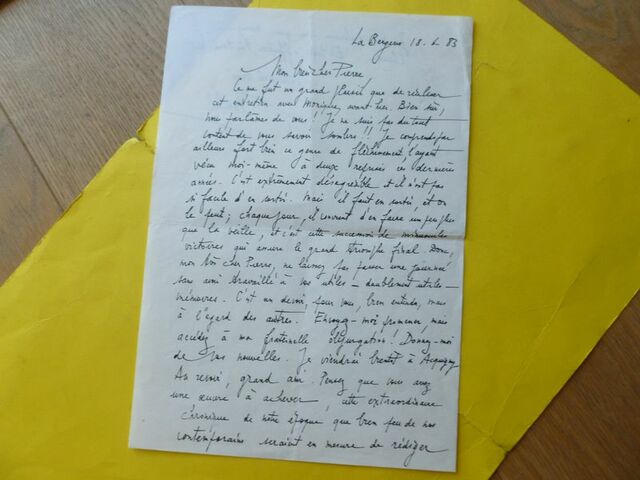 La Bergerie 18. 2. 83
Mon bien cher Pierre
Ce me fut un grand plaisir que de réaliser
cet entretien avec Monique, avant-hier. Bien sûr,
nous parlâmes de vous! Je ne suis pas du tout
content de vous savoir sombre!! Je comprends par
ailleurs fort bien ce genre de fléchissement, l'ayant
vécu moi-même à deux reprises ces dernières
années. C'est extrêmement désagréable et il n'est pas
si facile d'en sortir. Mais il faut en sortir, et on
le peut; chaque jour, il convient d'en faire un peu plus
que la veille, et c'est cette succession de minuscules
victoires qui assure le grand triomphe final. Donc,
mon bon cher Pierre, ne laissez pas passer une journée
sans avoir travaillé à vos utiles - doublement utiles -
mémoires. C'est un devoir, pour vous, bien entendu, mais
à l'égard des autres. Envoyez-moi promener, mais
accédez à ma fraternelle objurgation! Donnez-moi
de vos nouvelles. Je viendrai bientôt à Acquigny.
Au revoir, grand ami. Pensez que vous avez
une œuvre à achever, cette extraordinaire
chronique de notre époque que bien peu de nos
contemporains seraient en mesure de rédiger